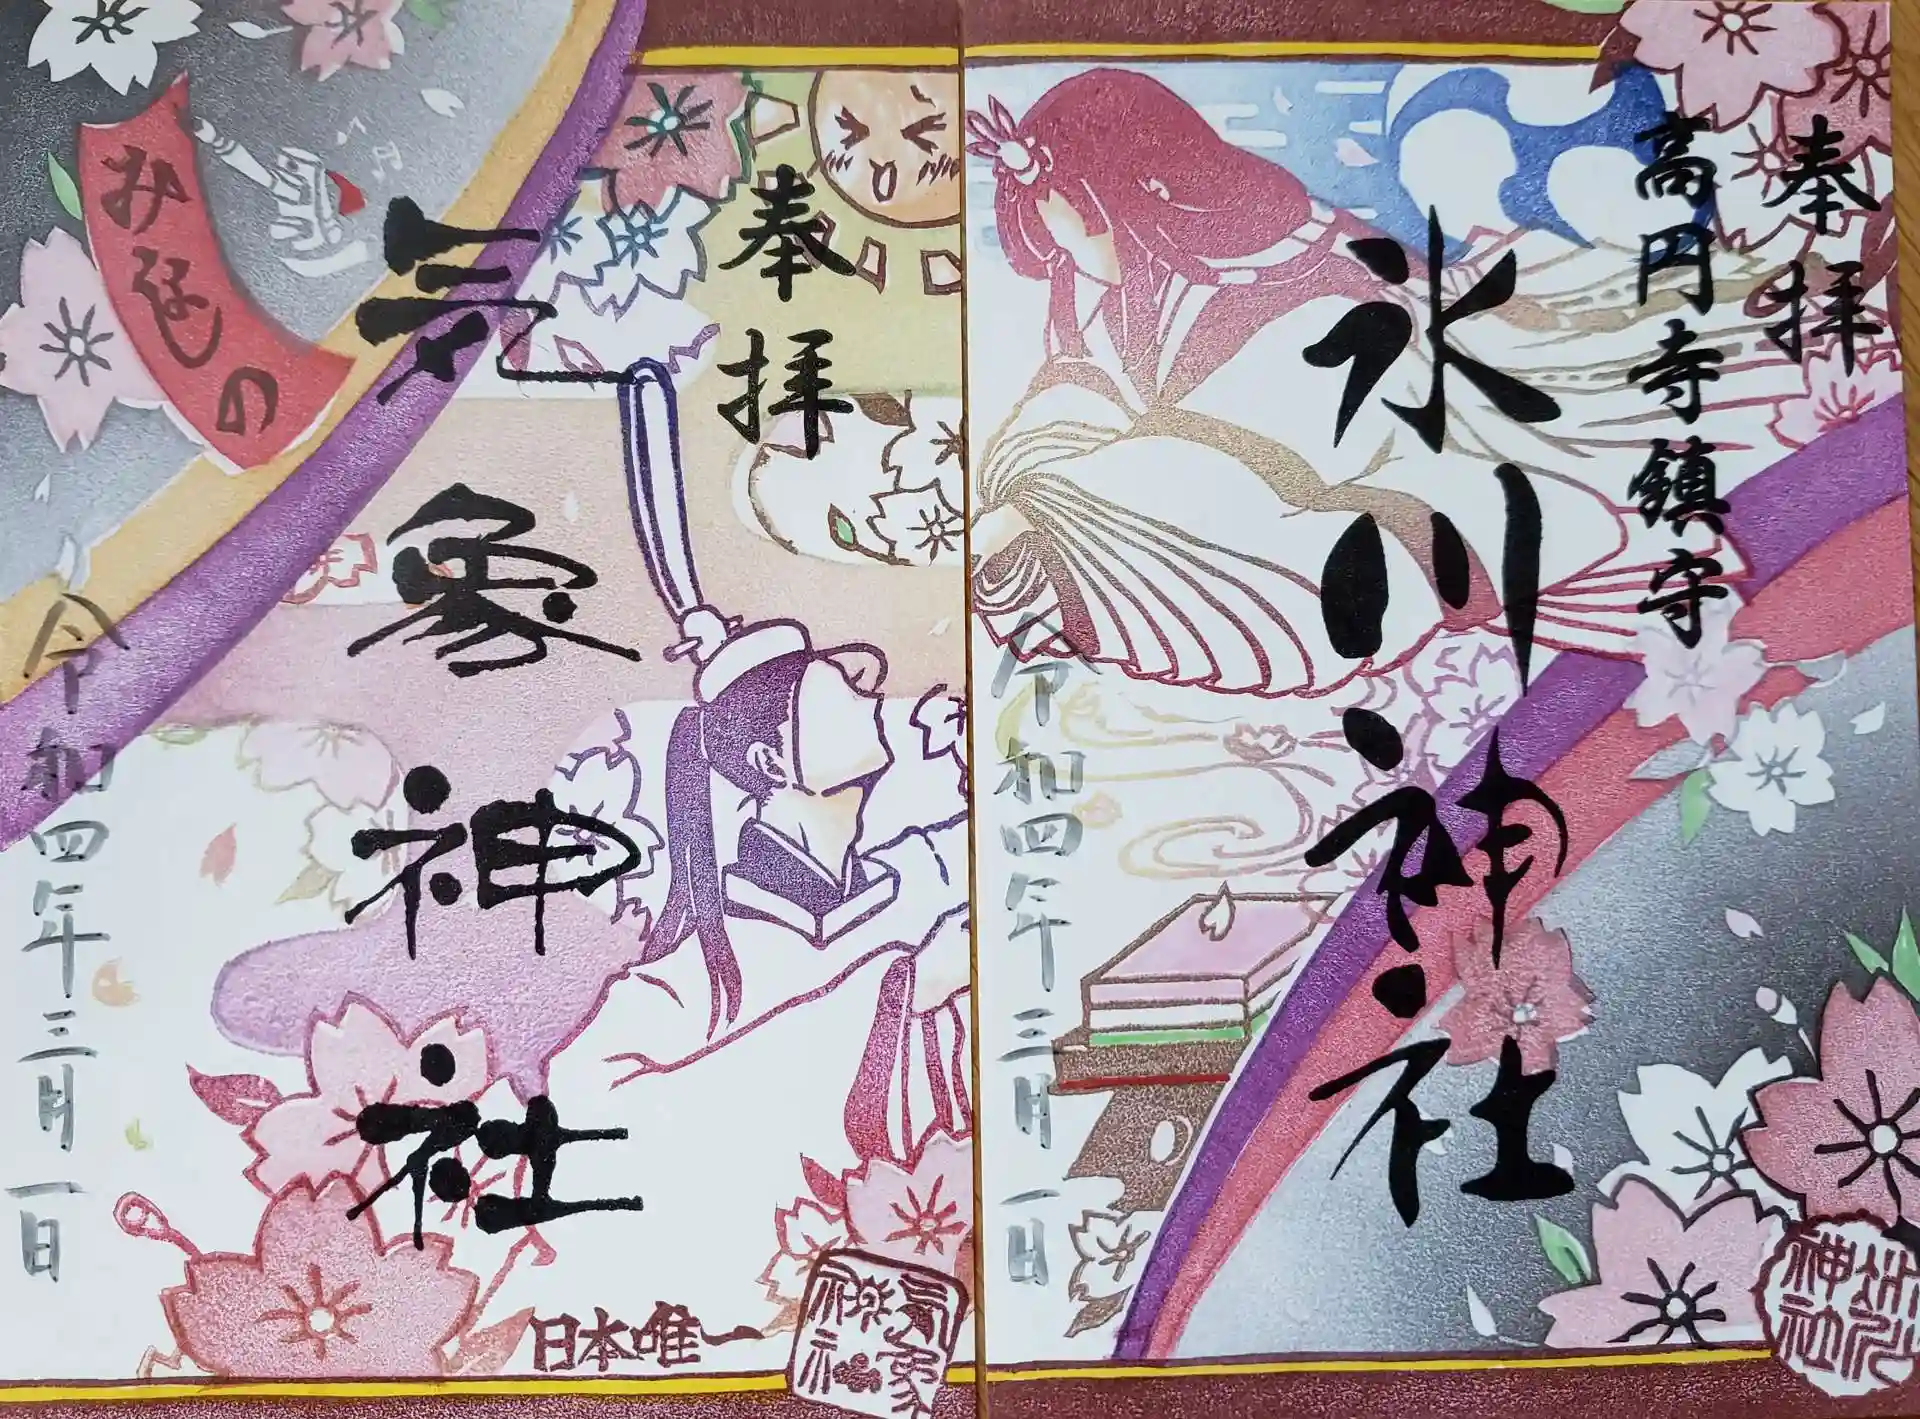 奉拝
高円寺鎮守
氷川神社
令和四年三月一日
氷川神社
奉拝
気象神社
日本唯一
気象神社
みなしの
令和四年三月一日